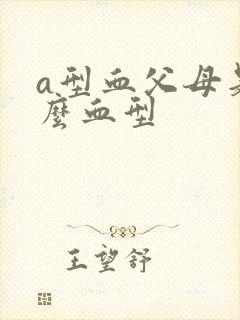 a型血父母是
麼血型
王望舒